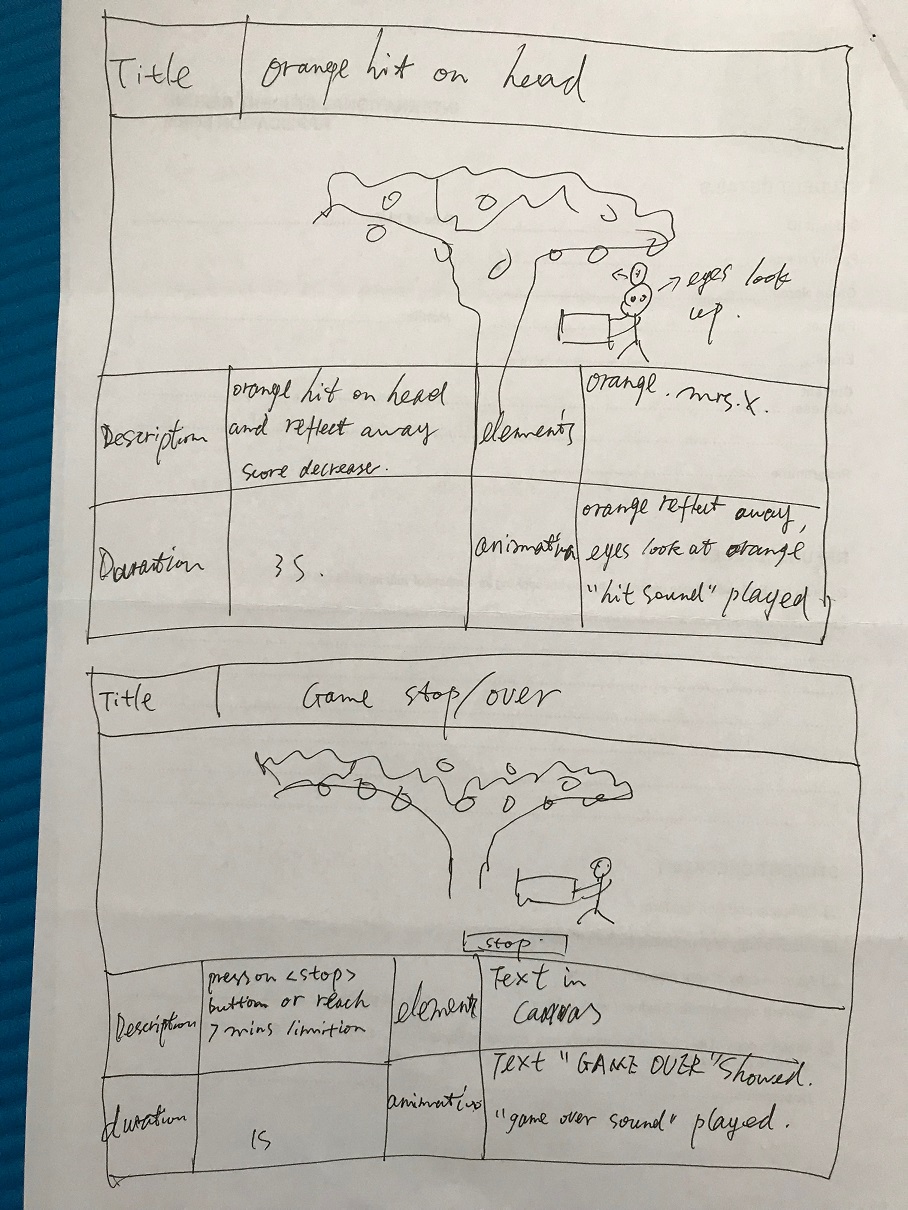 Title
orange hit on head
eyes look
up.
Description
orange hit on head
and reflect away
score decrease.
elements
orange. mrs.X.
Duration
3S.
animation
orange reflect away,
eyes look at orange
"hit sound" played
Title
Game stop/over
stop.
Description
press on <stop>
button or reach
7 mins limition
elements
Text in
Canvas
duration
1S
animation
Text "GAME OVER" showed.
"game over sound" played.